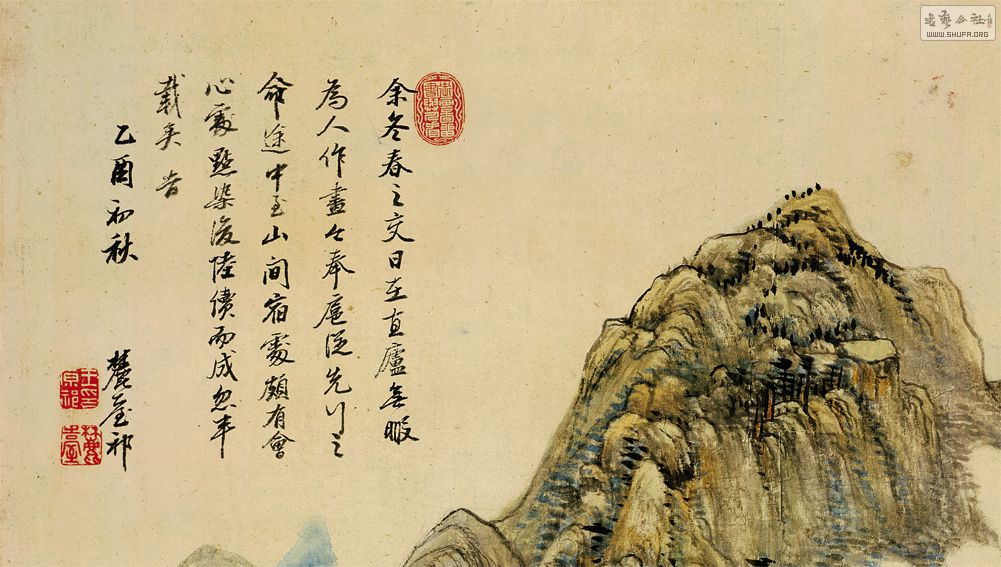 余冬春之交日在直廬無暇
為人作畫今奉扈從先行之
命途中至山間宿處頗有會
心處點染後陸續而成忽半
載矣昔
乙酉初秋
麓臺祁
王原祁印
麓臺
WWW.SHUFA.ORG